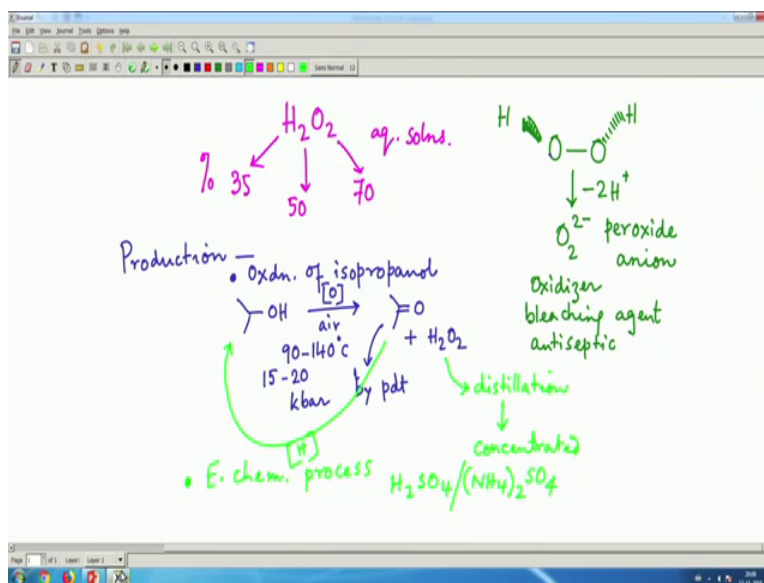 Journal
File Edit View Journal Tools Options Help
Sans Normal 12
H2O2 aq. solns.
% 35 50 70
H H
O—O
-2H+
O2 2- peroxide
anion
Oxidizer
bleaching agent
antiseptic
Production —
• Oxdn. of isopropanol
OH [O] O
air
+ H2O2
90–140°C
15–20
kbar
by pdt
distillation
concentrated
[H]
• E. chem. process H2SO4/(NH4)2SO4
Page 1 of 1 Layer: Layer 1